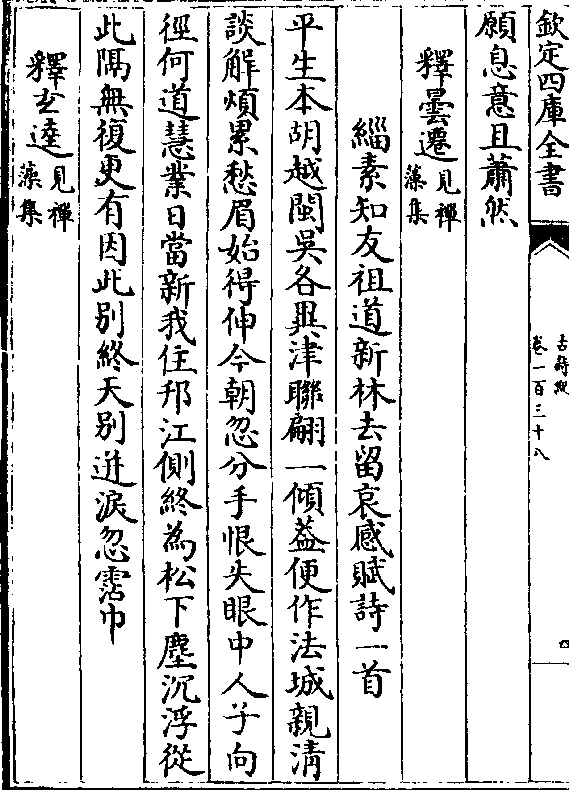 欽定四庫全書
古詩紀
卷一百三十八
四
願息意且蕭然
釋曇遷見禪藻集
緇素知友祖道新林去留哀感賦詩一首
平生本胡越閩吳各異津聯翩一傾葢便作法城親清
談解煩累愁眉始得伸今朝忽分手恨失眼中人子向
徑何道慧業日當新我住邗江側終為松下塵沉浮從
此隔無復更有因此別終天别迸淚忽霑巾
釋玄逵見禪藻集